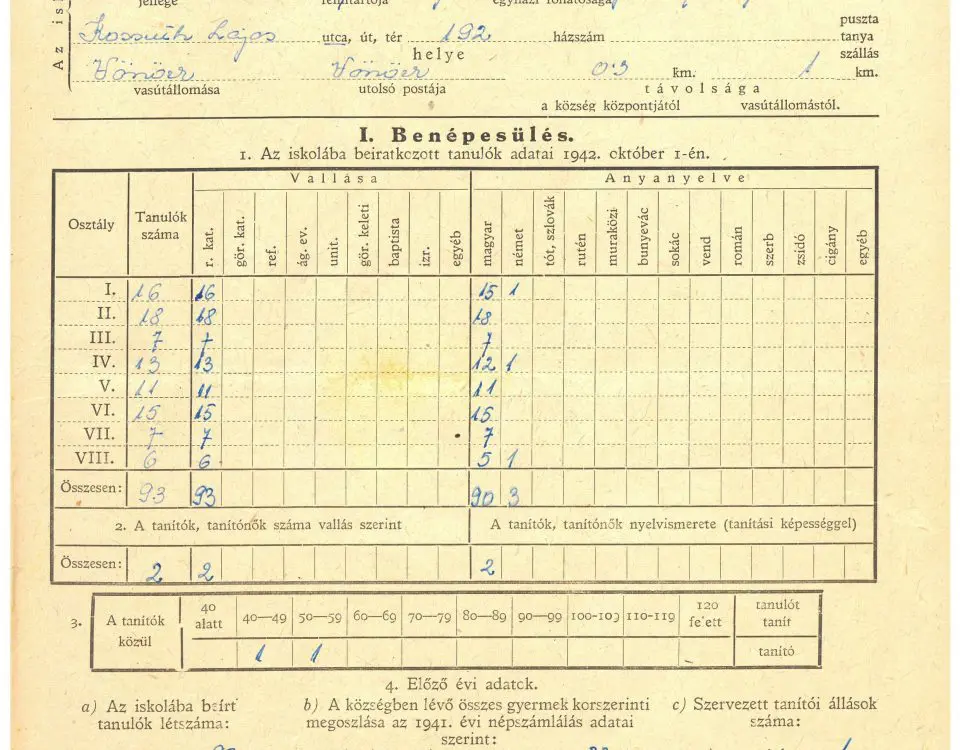 jellege fenntartója egyházi főhatósága
Az isk
Kossuth Lajos utca, út, tér 192 házszám puszta
tanya
helye szállás
Vönöer Vönöer 0·3 km. 1 km.
vasútállomása utolsó postája távolsága
a község központjától vasútállomástól.
I. Benépesülés.
1. Az iskolába beiratkozott tanulók adatai 1942. október 1-én.
Vallása Anyanyelve
Osztály Tanulók száma r. kat. gör. kat. ref. ág. ev. unit. gör. keleti baptista izr. egyéb magyar német tót, szlovák rutén muraközi bunyevác sokác vend román szerb zsidó cigány egyéb
I. 16 16 15 1
II. 18 18 18
III. 7 7 7
IV. 13 13 12 1
V. 11 11 11
VI. 15 15 15
VII. 7 7 7
VIII. 6 6 5 1
Összesen: 93 93 90 3
2. A tanítók, tanítónők száma vallás szerint A tanítók, tanítónők nyelvismerete (tanítási képességgel)
Összesen: 2 2 2
3. A tanítók közül 40 alatt 40—49 50—59 60—69 70—79 80—89 90—99 100-109 110-119 120 felett tanulót tanít
1 1 tanító
4. Előző évi adatok.
a) Az iskolába beírt b) A községben lévő összes gyermek korszerinti c) Szervezett tanítói állások
tanulók létszáma: megoszlása az 1941. évi népszámlálás adatai száma:
szerint: